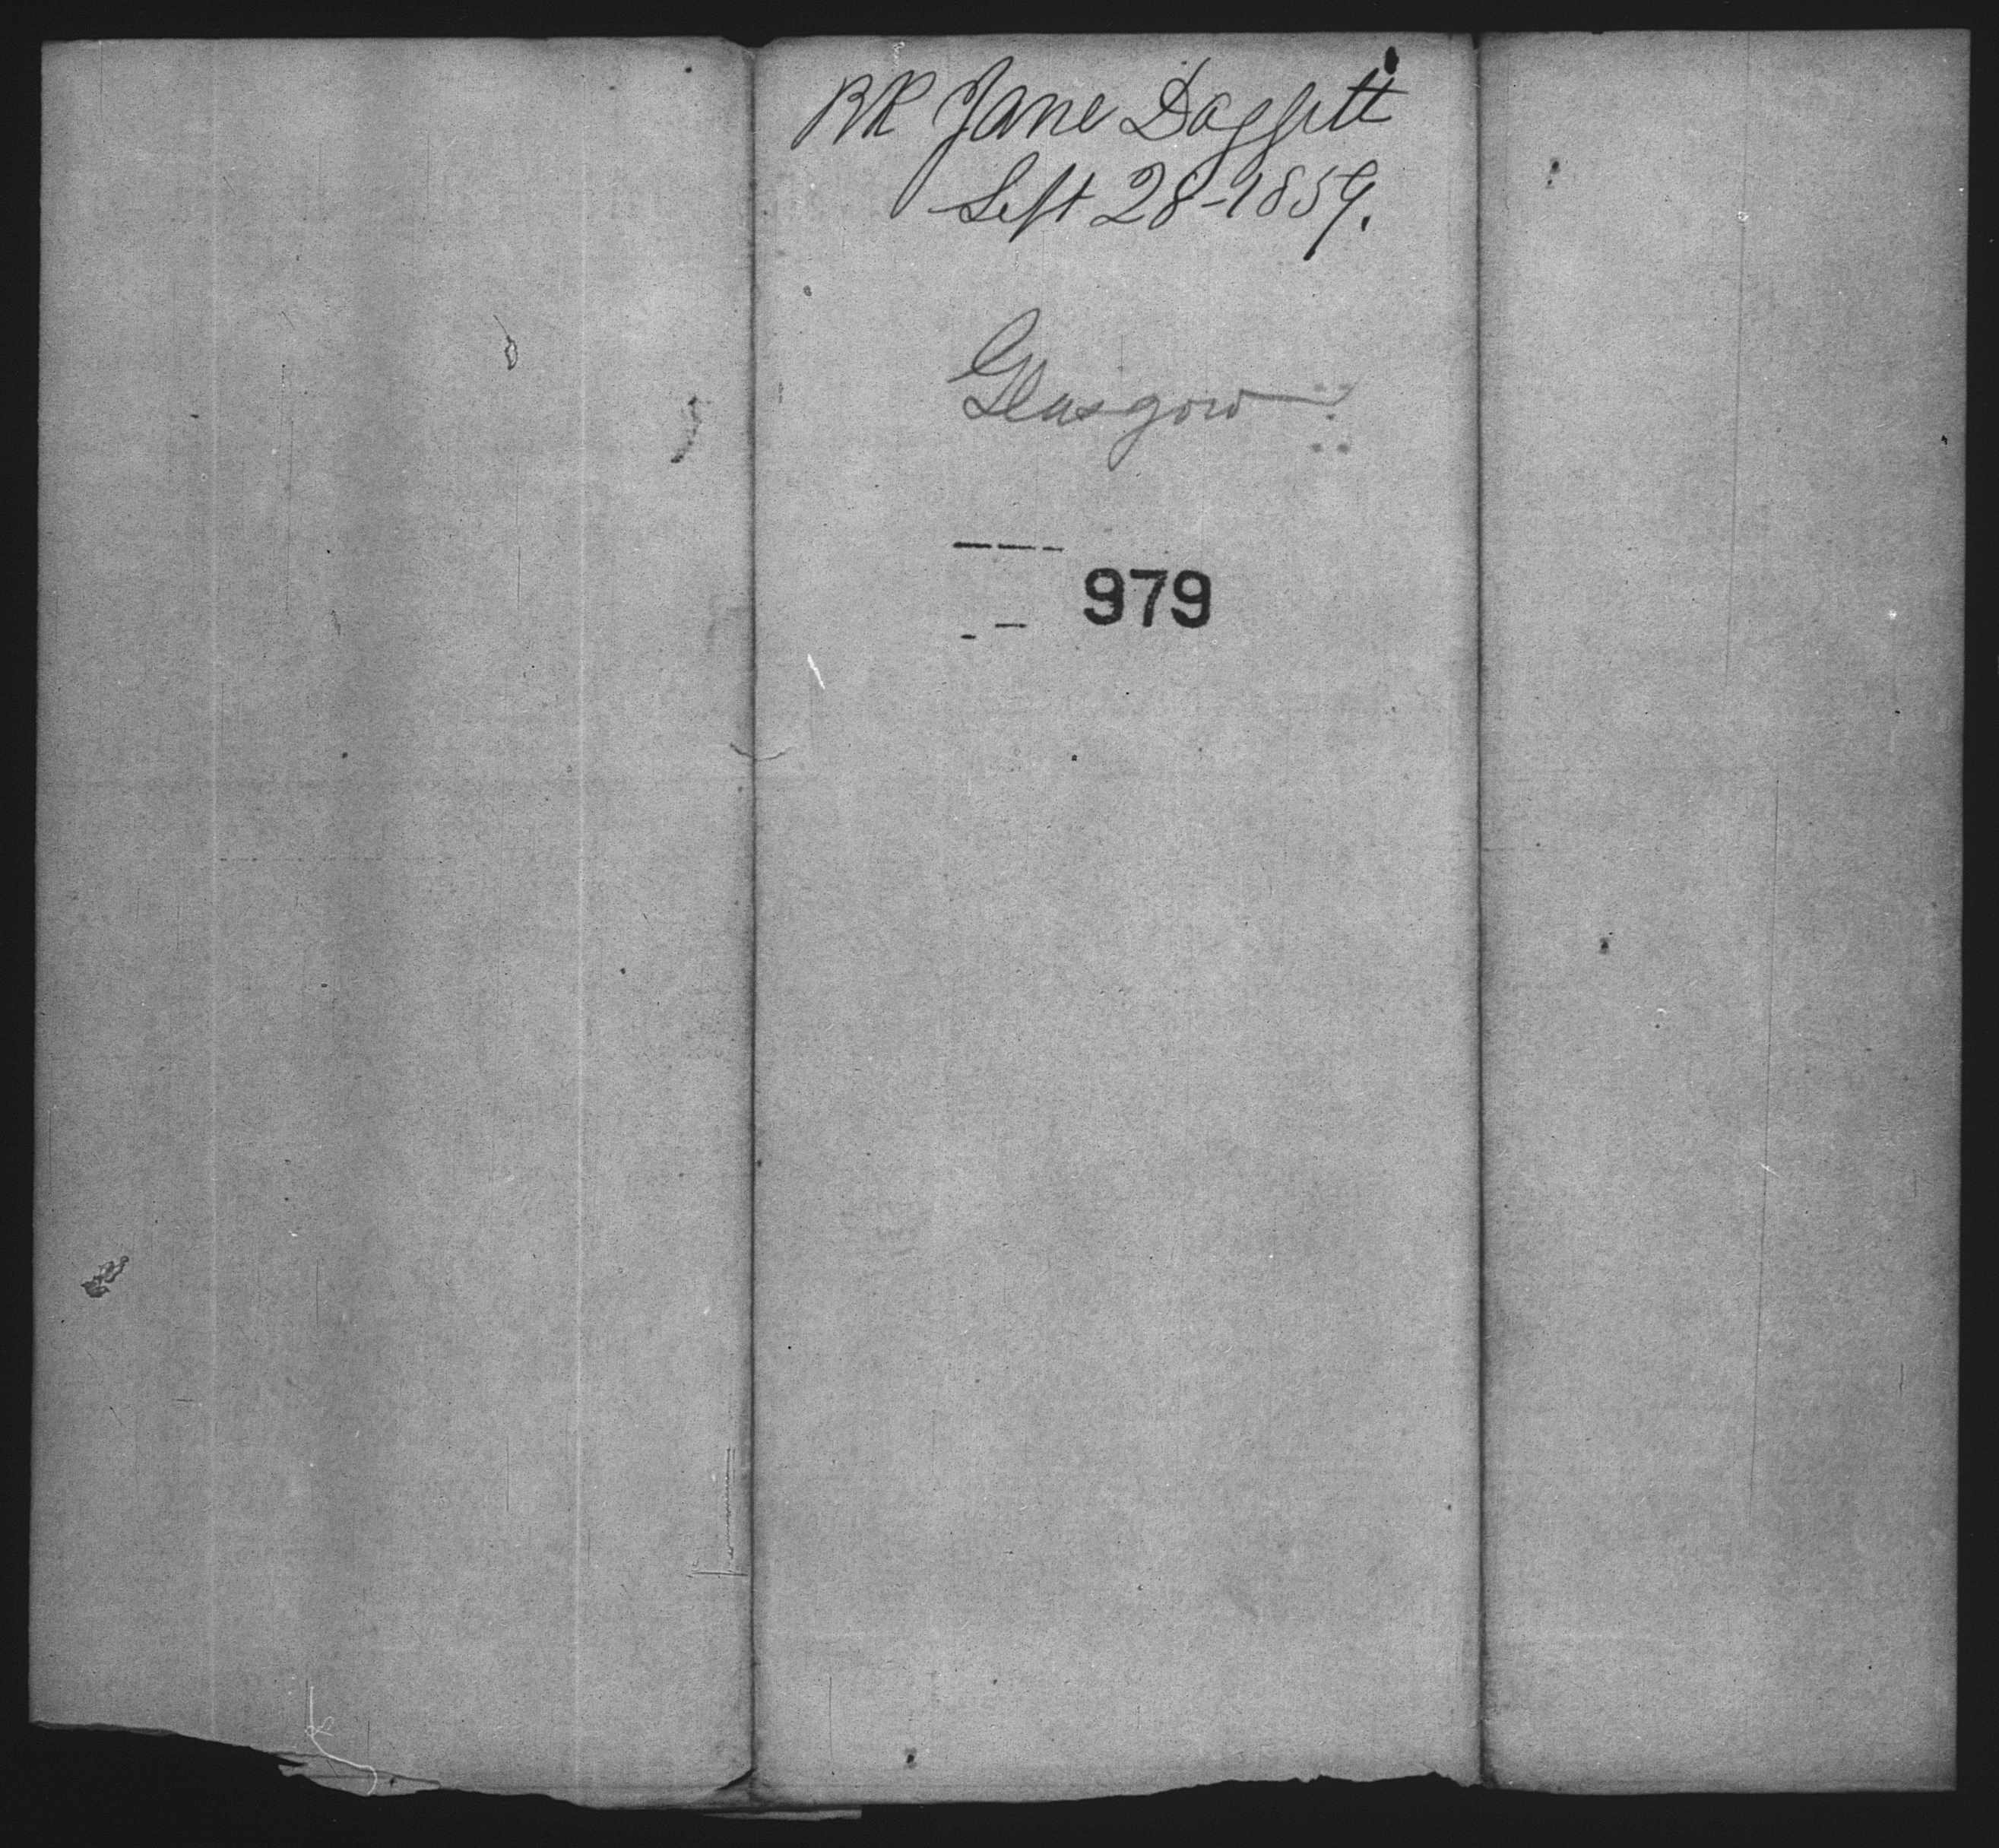 BK Jane Doggett
Sept 28-1859.
Glasgow
979